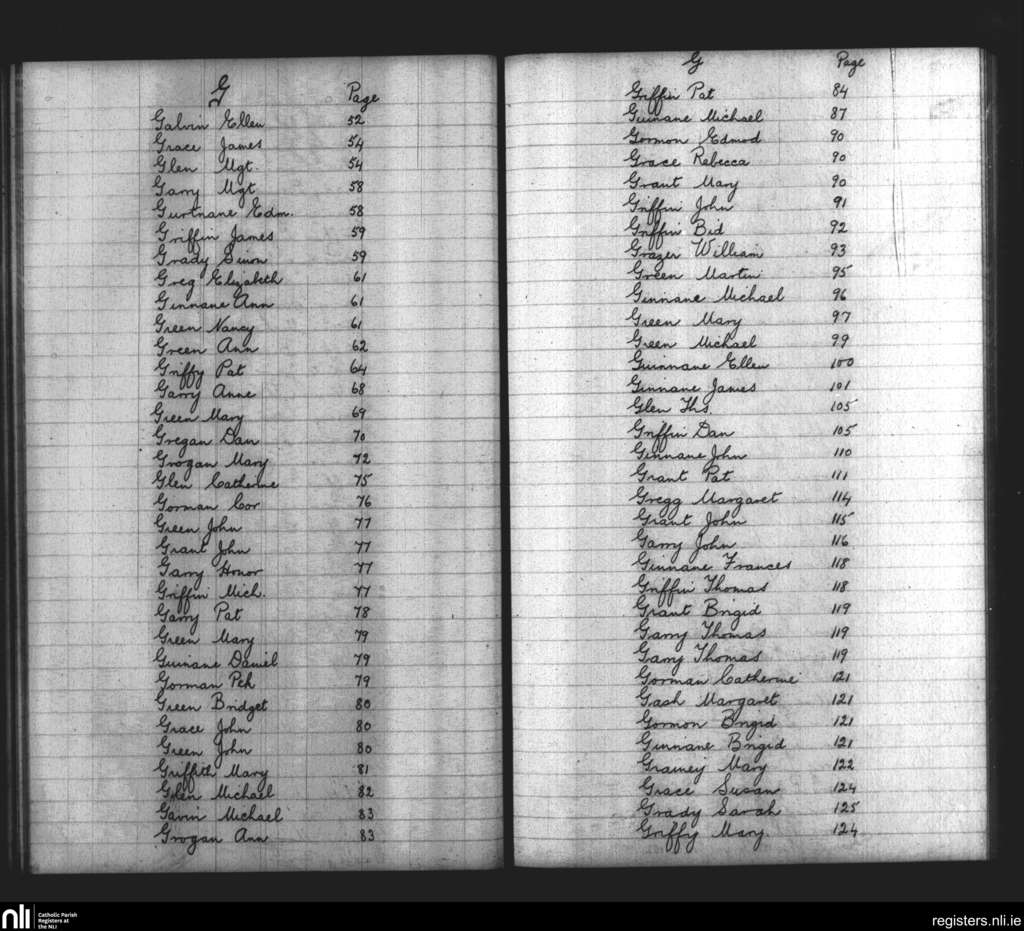 G
Page
Galvin Ellen 52
Grace James 54
Glen Mgt. 54
Garry Mgt 58
Gurtnane Edm. 58
Griffin James 59
Grady Simon 59
Greg Elizabeth 61
Ginnane Ann 61
Green Nancy 61
Green Ann 62
Griffy Pat 64
Garry Anne 68
Green Mary 69
Gregan Dan 70
Grogan Mary 72
Glen Catherine 75
Gorman Cor 76
Green John 77
Grant John 77
Garry Honor 77
Griffin Mich. 77
Garry Pat 78
Green Mary 79
Guinane Daniel 79
Gorman Peh 79
Green Bridget 80
Grace John 80
Green John 80
Griffith Mary 81
Glen Michael 82
Gavin Michael 83
Grogan Ann 83
G
Page
Griffin Pat 84
Guinane Michael 87
Gormon Edmod 90
Grace Rebecca 90
Grant Mary 90
Griffin John 91
Griffin Bid 92
Grazer William 93
Green Martin 95
Ginnane Michael 96
Green Mary 97
Green Michael 99
Guinnane Ellen 100
Ginnane James 101
Glen Ths. 105
Griffin Dan 105
Ginnane John 110
Grant Pat 111
Gregg Margaret 114
Grant John 115
Garry John 116
Ginnane Frances 118
Griffin Thomas 118
Grant Brigid 119
Garry Thomas 119
Garry Thomas 119
Gorman Catherine 121
Gash Margaret 121
Gormon Brigid 121
Ginnane Brigid 121
Grainey Mary 122
Grace Susan 124
Grady Sarah 125
Griffy Mary 124
nli
Catholic Parish
Registers at
the NLI
registers.nli.ie